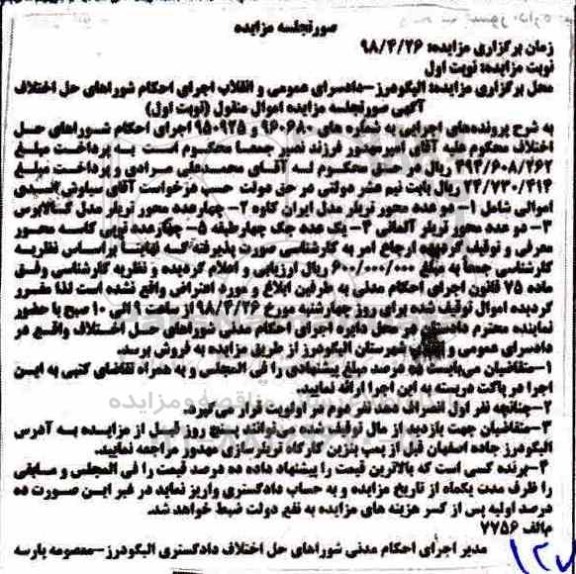 صورتجلسه مزایده
زمان برگزاری مزایده: ۹۸/۴/۲۶
نوبت مزایده: نوبت اول
محل برگزاری مزایده: الیگودرز-دادسرای عمومی و انقلاب اجرای احکام شوراهای حل اختلاف
آگهی صورتجلسه مزایده اموال منقول (نوبت اول)
به شرح پرونده‌های اجرایی به شماره های ۹۶۰۶۸۰ و ۹۵۰۹۲۵ اجرای احکام شوراهای حل
اختلاف محکوم علیه آقای امیر مهدور فرزند نصیر جمعا محکوم است به پرداخت مبلغ
۴۹۴/۶۰۸/۲۶۲ ریال در حق محکوم له آقای محمدعلی مرادی و پرداخت مبلغ
۲۴/۷۳۰/۴۱۴ ریال بابت نیم عشر دولتی در حق دولت حسب درخواست آقای سیاوش
اموالی شامل ۱- دو عدد محور تریلر مدل ایران کاوه ۲- چهارعدد محور تریلر مدل کالابرس
۳- دو عدد محور تریلر آلمانی ۴- یک عدد جک چهارطبقه ۵- چهارعدد توپی کاسه محور
معرفی و توقیف گردیده ارجاع امر به کارشناسی صورت پذیرفته که نهایتا براساس نظریه
کارشناسی جمعا به مبلغ ۶۰۰/۰۰۰/۰۰۰ ریال ارزیابی و اعلام گردیده و نظریه کارشناسی وفق
ماده ۷۵ قانون اجرای احکام مدنی به طرفین ابلاغ و مورد اعتراض واقع نشده است لذا مقرر
گردیده اموال توقیف شده برای روز چهارشنبه مورخ ۹۸/۴/۲۶ از ساعت ۹ الی ۱۰ صبح با حضور
نماینده محترم دادستان در محل دایره اجرای احکام مدنی شوراهای حل اختلاف واقع در
دادسرای عمومی و انقلاب شهرستان الیگودرز از طریق مزایده به فروش برسد.
۱-متقاضیان می‌بایست ده درصد مبلغ پیشنهادی را فی المجلس و به همراه تقاضای کتبی به این
اجرا در پاکت دربسته به این اجرا ارائه نمایید.
۲-چنانچه نفر اول انصراف دهد نفر دوم در اولویت قرار می‌گیرد.
۳-متقاضیان جهت بازدید از مال توقیف شده می‌توانند پنج روز قبل از مزایده به آدرس
الیگودرز جاده اصفهان قبل از پمپ بنزین کارگاه تریلرسازی مهدور مراجعه نمایند.
۴-برنده کسی است که بالاترین قیمت را پیشنهاد داده ده درصد قیمت را فی المجلس و مابقی
را ظرف مدت یکماه از تاریخ مزایده و به حساب دادگستری واریز نماید در غیر این صورت ده
درصد اولیه پس از کسر هزینه های مزایده به نفع دولت ضبط خواهد شد.
م‌الف ۷۷۵۶
مدیر اجرای احکام مدنی شوراهای حل اختلاف دادگستری الیگودرز-معصومه پارسه